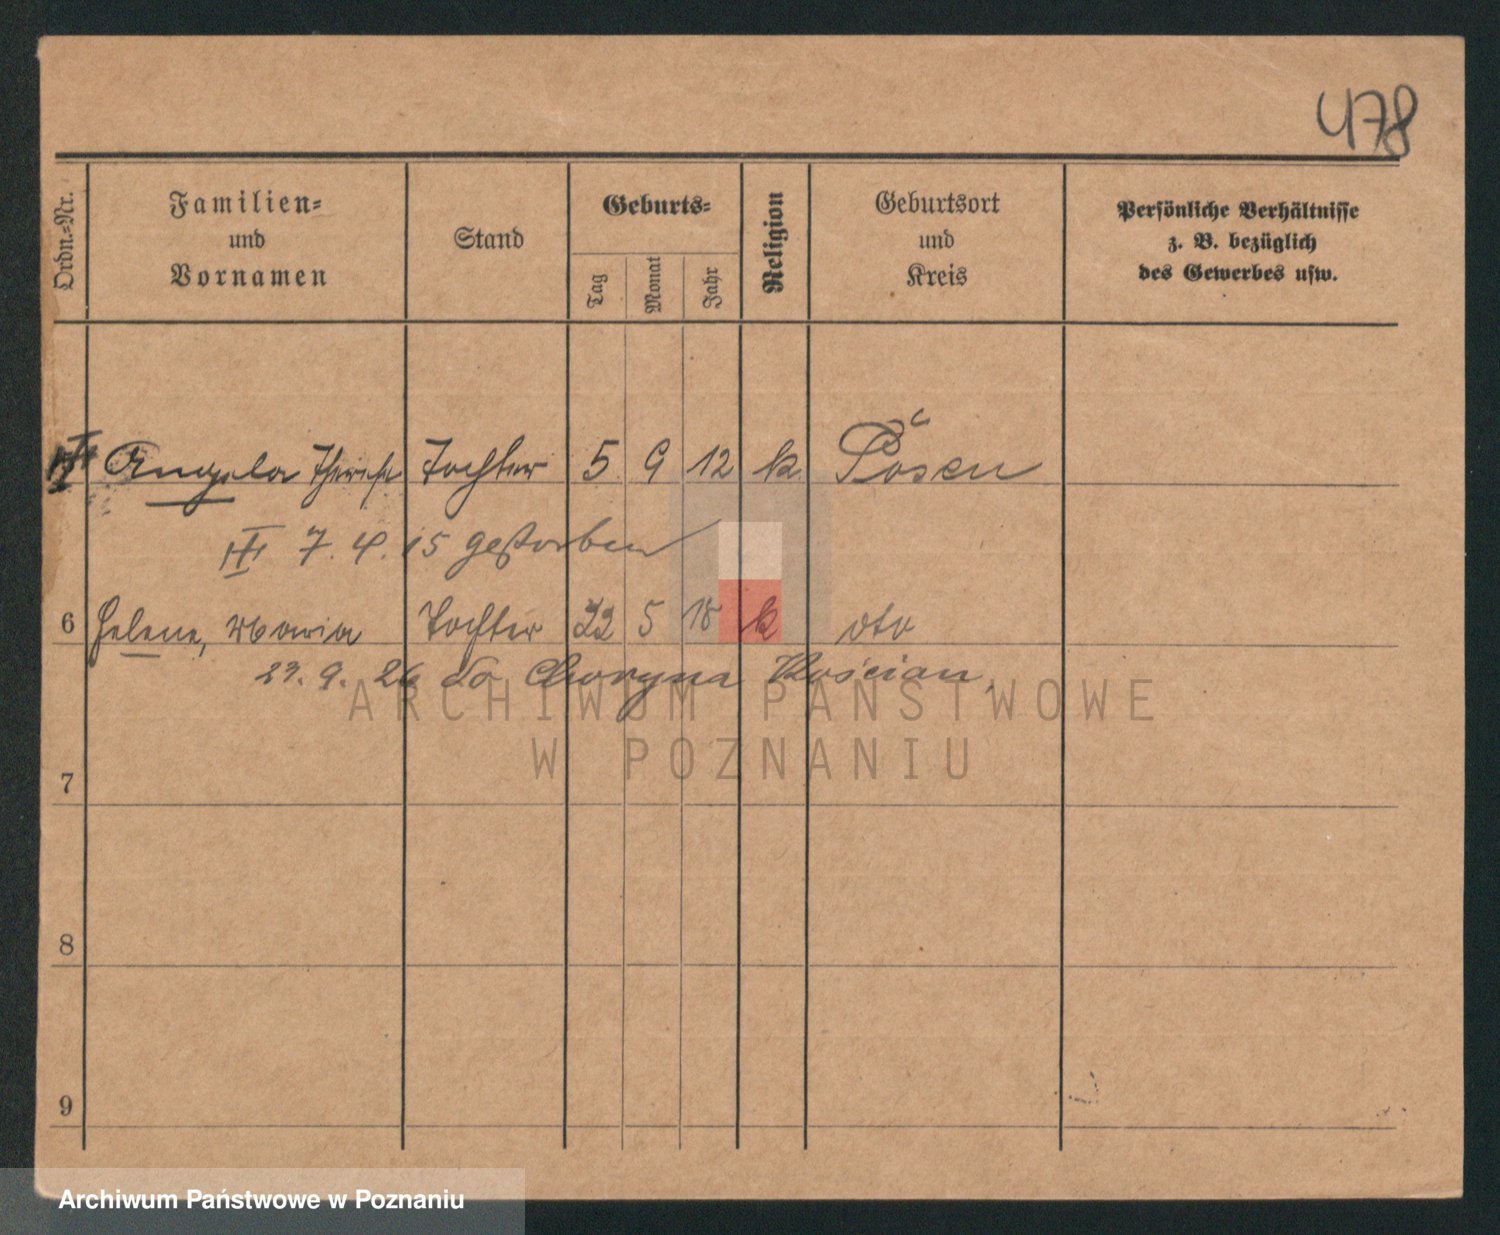 478
Ordn.-Nr.
Familien-
und
Vornamen
Stand
Geburts-
Tag
Monat
Jahr
Religion
Geburtsort
und
Kreis
Persönliche Verhältnisse
z. B. bezüglich
des Gewerbes usw.
Angela Theresa Tochter 5 9 12 k Posen
7. 4. 15 gestorben
6 Helene, Maria Tochter 22 5 18 k dto
23. 9. 26 do Choryna Kościan
7
8
9
ARCHIWUM PAŃSTWOWE
W POZNANIU
Archiwum Państwowe w Poznaniu